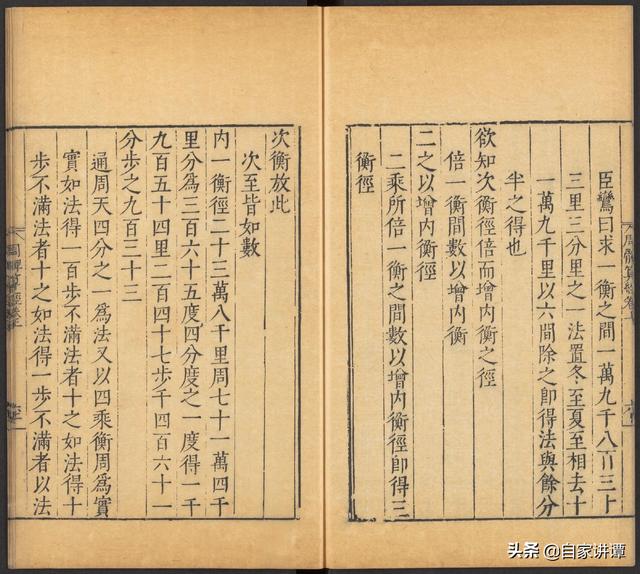 臣鸞曰求一衡之間一萬九千八百三十
三里三分里之一法置冬至夏至相去十
一萬九千里以六間除之即得法與餘分
半之得也
欲知次衡徑倍而增內衡之徑
倍一衡間數以增內衡
二之以增內衡徑
二乘所倍一衡之間數以增內衡徑即得三
衡徑
次衡放此
次至皆如數
內一衡徑二十三萬八千里周七十一萬四千
里分為三百六十五度四分度之一度得一千
九百五十四里二百四十七步千四百六十一
分步之九百三十三
通周天四分之一為法又以四乘衡周為實
實如法得一百步不滿法者十之如法得十
步不滿法者十之如法得一步不滿者以法
頭条 @自家讲谭